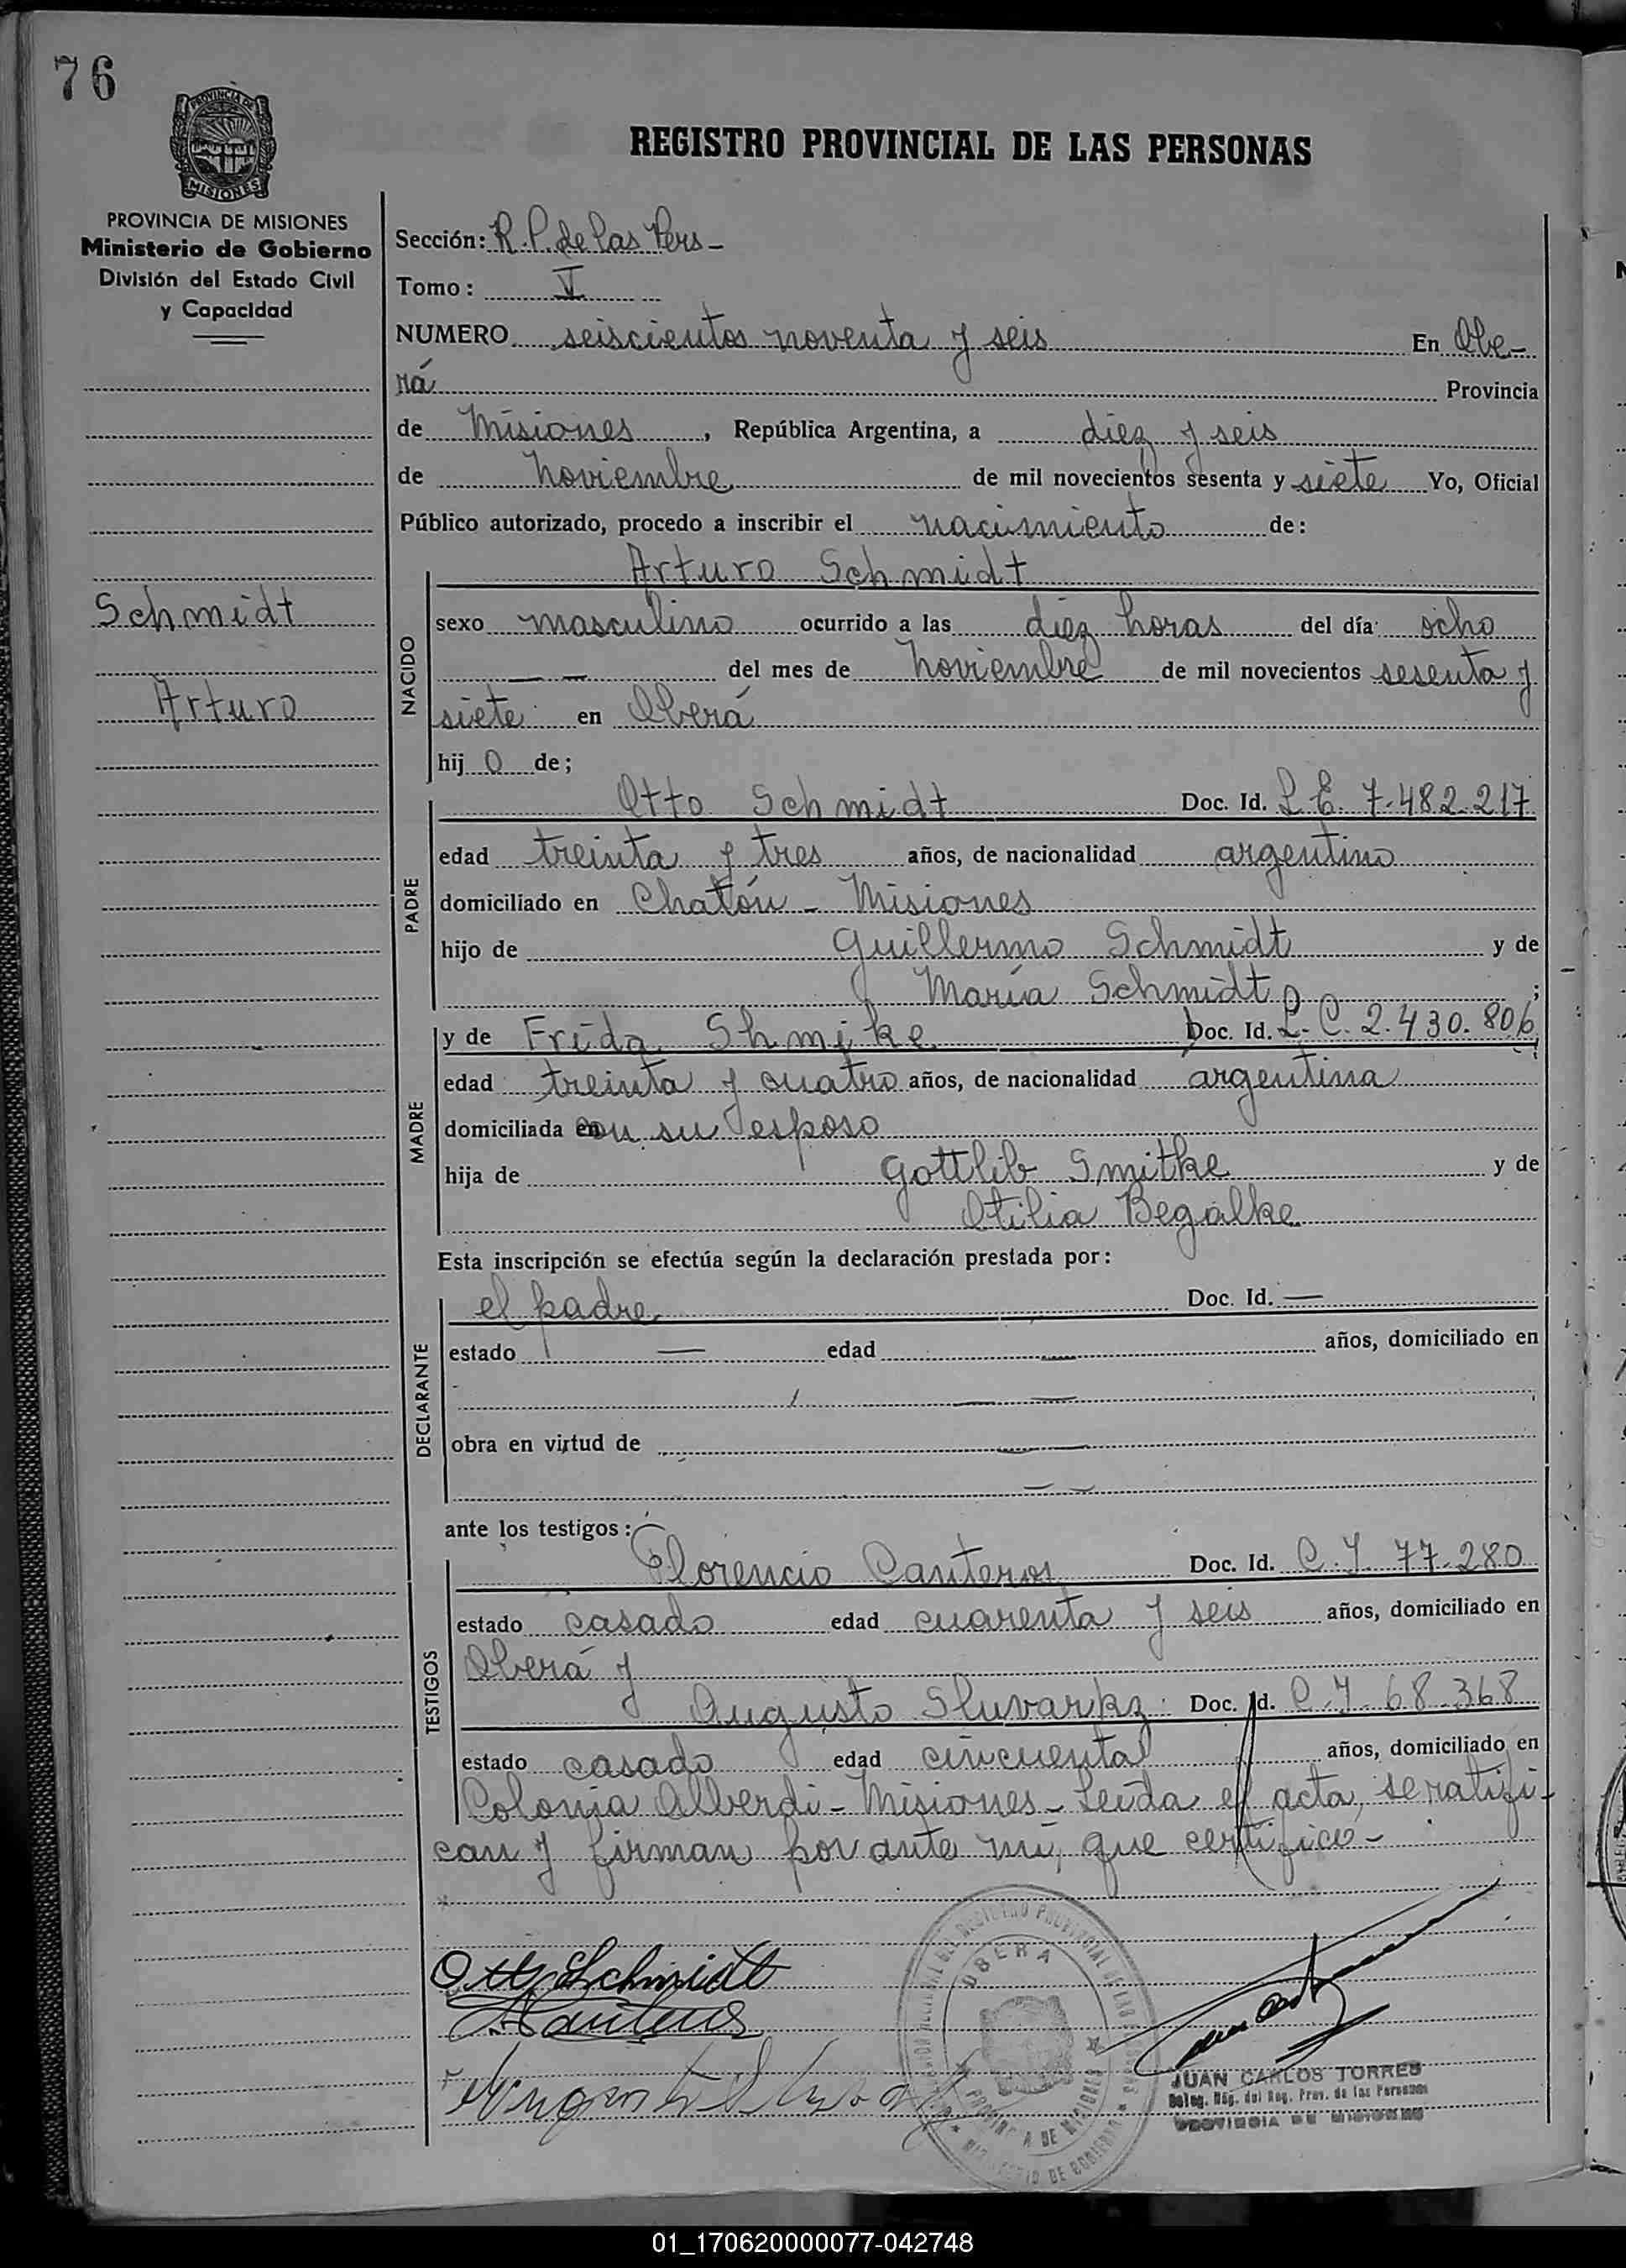 76
PROVINCIA DE
MISIONES
REGISTRO PROVINCIAL DE LAS PERSONAS
PROVINCIA DE MISIONES
Ministerio de Gobierno
División del Estado Civil
y Capacidad
Schmidt
Arturo
Sección: R.P. de las Pers-
Tomo: V
NUMERO seiscientos noventa y seis En Obe-
rá Provincia
de Misiones, República Argentina, a diez y seis
de Noviembre de mil novecientos sesenta y siete Yo, Oficial
Público autorizado, procedo a inscribir el nacimiento de:
Arturo Schmidt
NACIDO
sexo masculino ocurrido a las diez horas del día ocho
— — del mes de Noviembre de mil novecientos sesenta y
siete en Oberá
hij o de;
PADRE
Otto Schmidt Doc. Id. L.E. 7.482.217
edad treinta y tres años, de nacionalidad argentino
domiciliado en Chafón - Misiones
hijo de Guillermo Schmidt y de
María Schmidt ;
MADRE
y de Frida Shmike Doc. Id. L.C. 2.430.806
edad treinta y cuatro años, de nacionalidad argentina
domiciliada con su esposo
hija de Gottlib Smitke y de
Otilia Begalke
Esta inscripción se efectúa según la declaración prestada por:
DECLARANTE
el padre Doc. Id. —
estado — edad — años, domiciliado en
—
obra en virtud de —
— —
ante los testigos:
TESTIGOS
Florencio Canteros Doc. Id. C.I. 77.280
estado casado edad cuarenta y seis años, domiciliado en
Oberá y
Augusto Sluvarkz Doc. Id. C.I. 68.368
estado casado edad cincuenta años, domiciliado en
Colonia Alberdi - Misiones - Leída el acta, se ratifi-
can y firman por ante mí, que certifico -
Otto Schmidt
Canteros
OBERA
JUAN CARLOS TORRES
Deleg. Rég. del Reg. Prov. de las Personas
PROVINCIA DE MISIONES
01_170620000077-042748